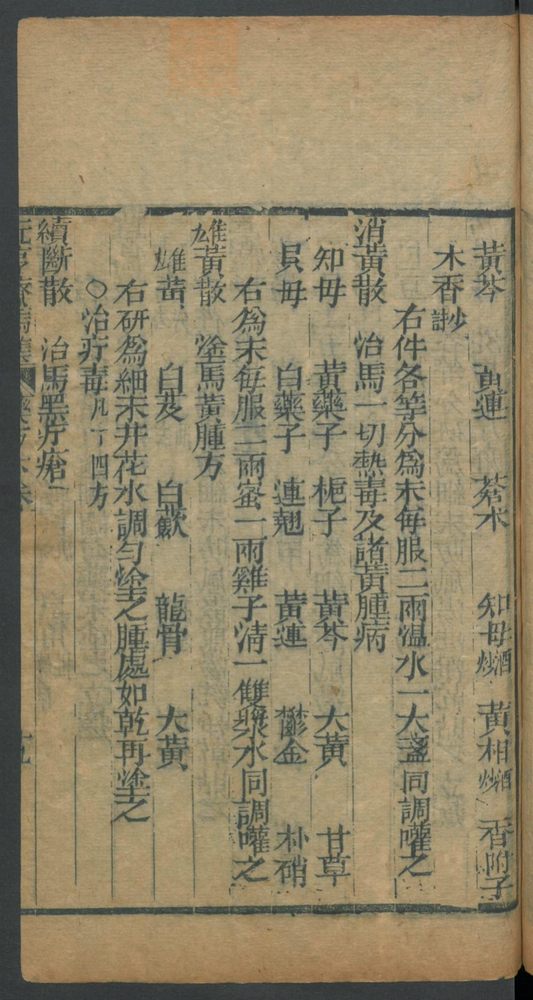 黄芩 黄連 蒼朮 知母酒炒 黄柏酒炒 香附子
木香炒
右件各等分爲末每服二兩温水一大盞同調嚾之
消黄散 治馬一切熱毒及諸黄腫病
知母 黄藥子 梔子 黄芩 大黄 甘草
貝母 白藥子 連翹 黄連 鬱金 朴硝
右爲末毎服二兩蜜一兩雞子清一雙漿水同調嚾之
雄黄散 塗馬黄腫方
雄黄 白芨 白蘞 龍骨 大黄
右研爲細末井花水調勻塗之腫處如乾再塗之
○治疔毒凡十四方
續斷散 治馬黑疔瘡